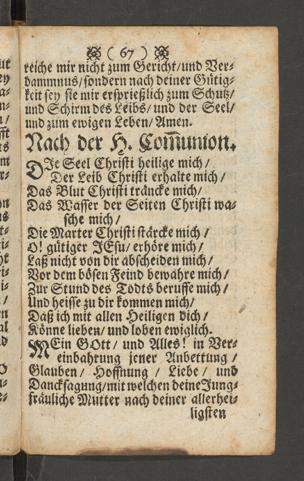 ( 67 )
reiche mir nicht zum Gericht/und Ver-
dammnus/sondern nach deiner Gütig-
keit sey sie mir ersprießlich zum Schutz/
und Schirm des Leibs/ und der Seel/
und zum ewigen Leben/ Amen.
Nach der H. Com̄union.
DIe Seel Christi heilige mich/
Der Leib Christi erhalte mich/
Das Blut Christi träncke mich/
Das Wasser der Seiten Christi wa-
sche mich/
Die Marter Christi stärcke mich/
O! gütiger JEsu/ erhöre mich/
Laß nicht von dir abscheiden mich/
Vor dem bösen Feind bewahre mich/
Zur Stund des Todts beruffe mich/
Und heisse zu dir kommen mich/
Daß ich mit allen Heiligen dich/
Könne lieben/ und loben ewiglich.
MEin GOtt/ und Alles! in Ver-
einbahrung jener Anbettung/
Glauben/ Hoffnung/ Liebe/ und
Dancksagung/mit welchen deine Jung-
fräuliche Mutter nach deiner allerhei-
ligsten